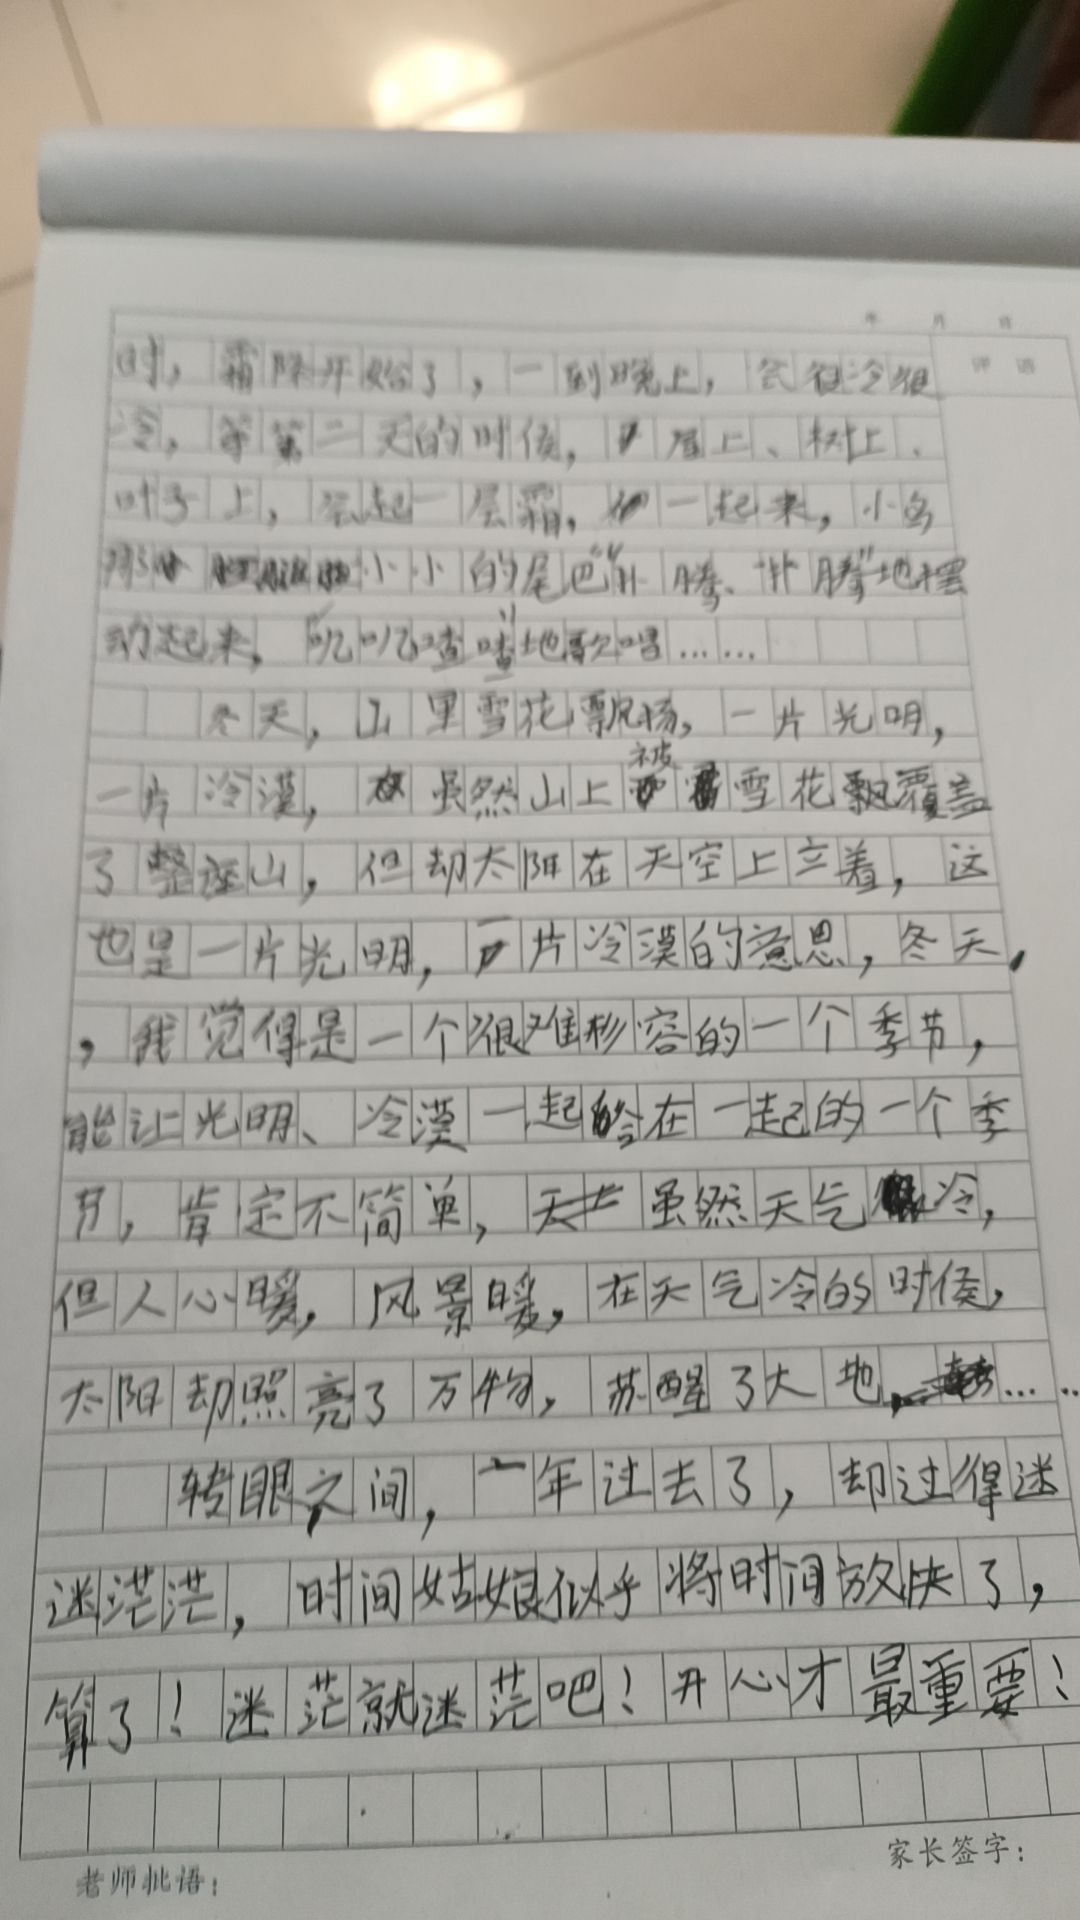 年 月 日
评语
时，霜降开始了，一到晚上，会很冷很
冷，等第二天的时候，屋上、树上、
叶子上，会起一层霜，一起来，小鸟
那小小的尾巴"扑腾、扑腾"地摆
动起来，叽叽喳喳地歌唱……
冬天，山里雪花飘扬，一片光明，
一片冷漠，虽然山上被雪花飘覆盖
了整座山，但却太阳在天空上立着，这
也是一片光明，一片冷漠的意思，冬天，
，我觉得是一个很难形容的一个季节，
能让光明、冷漠一起给在一起的一个季
节，肯定不简单，虽然天气冷，
但人心暖，风景暖，在天气冷的时候，
太阳却照亮了万物，苏醒了大地……
转眼之间，一年过去了，却过得迷
迷茫茫，时间姑娘似乎将时间放快了，
算了！迷茫就迷茫吧！开心才最重要！
家长签字：
老师批语：